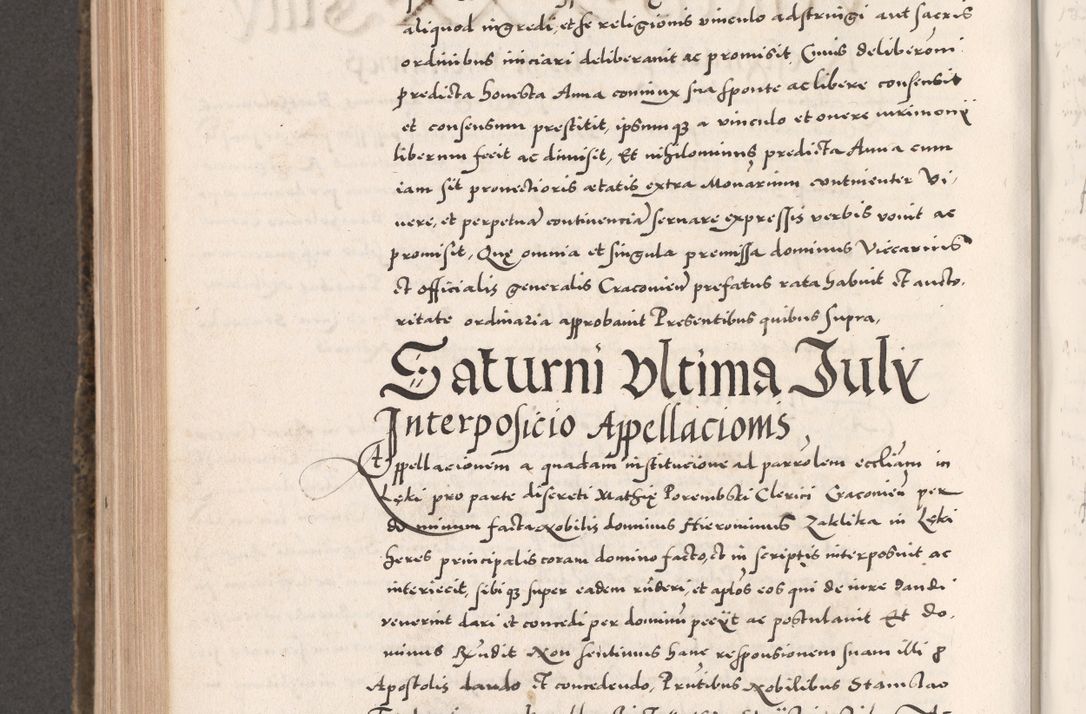 aliquod ingredi, et se religionis vinculo adstringi aut sacris
ordinibus iniciari deliberavit ac promisit, Cuius deliberõni
predicta honesta Anna coniunx sua sponte ac libere consensit
et consensum prestitit, ipsumqз a vinculo et onere mrimonÿ
liberum fecit ac dimisit, Et nihilominus predicta Anna cum
iam sit provectioris ætatis extra Monarium continenter Vi-
vere, et perpetuã continenciã servare expressis verbis vovit ac
promisit, Quę omnia et singula premissa dominus Viccarius
et officialis generalis Cracovieñ prefatus rata habuit et aucto-
ritate ordinaria approbavit Presentibus quibus supra,
Saturni Ultima Julÿ
Interposicio Appellacionis
Appellacionem a quadam institucione ad parrõlem eccliam in
Lęki pro parte discreti Mathię Porembski Clerici Cracovieñ per
dominum facta Nobilis dominus Hierominus Zaklika in Lęki
heres principalis coram domino facto, et in scriptis interposuit ac
interiecit, sibi qз super eadem rñderi, et aplos eos qui de iure dandi
venerint dari et concedi per dominũ peciÿt ac postulavit Et do-
minus Rñdit Non sentimus hanc responsionem suam illi p
Apostolis dando et concedendo, Prñtibus Nobilibus Stanislao